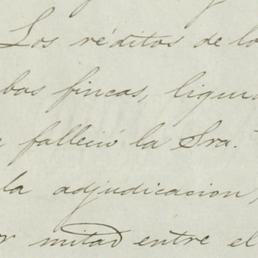 Los réditos de lo
bas fincas, liqui
e falleció la Sra.
la adjudicacion,
r mitad entre el